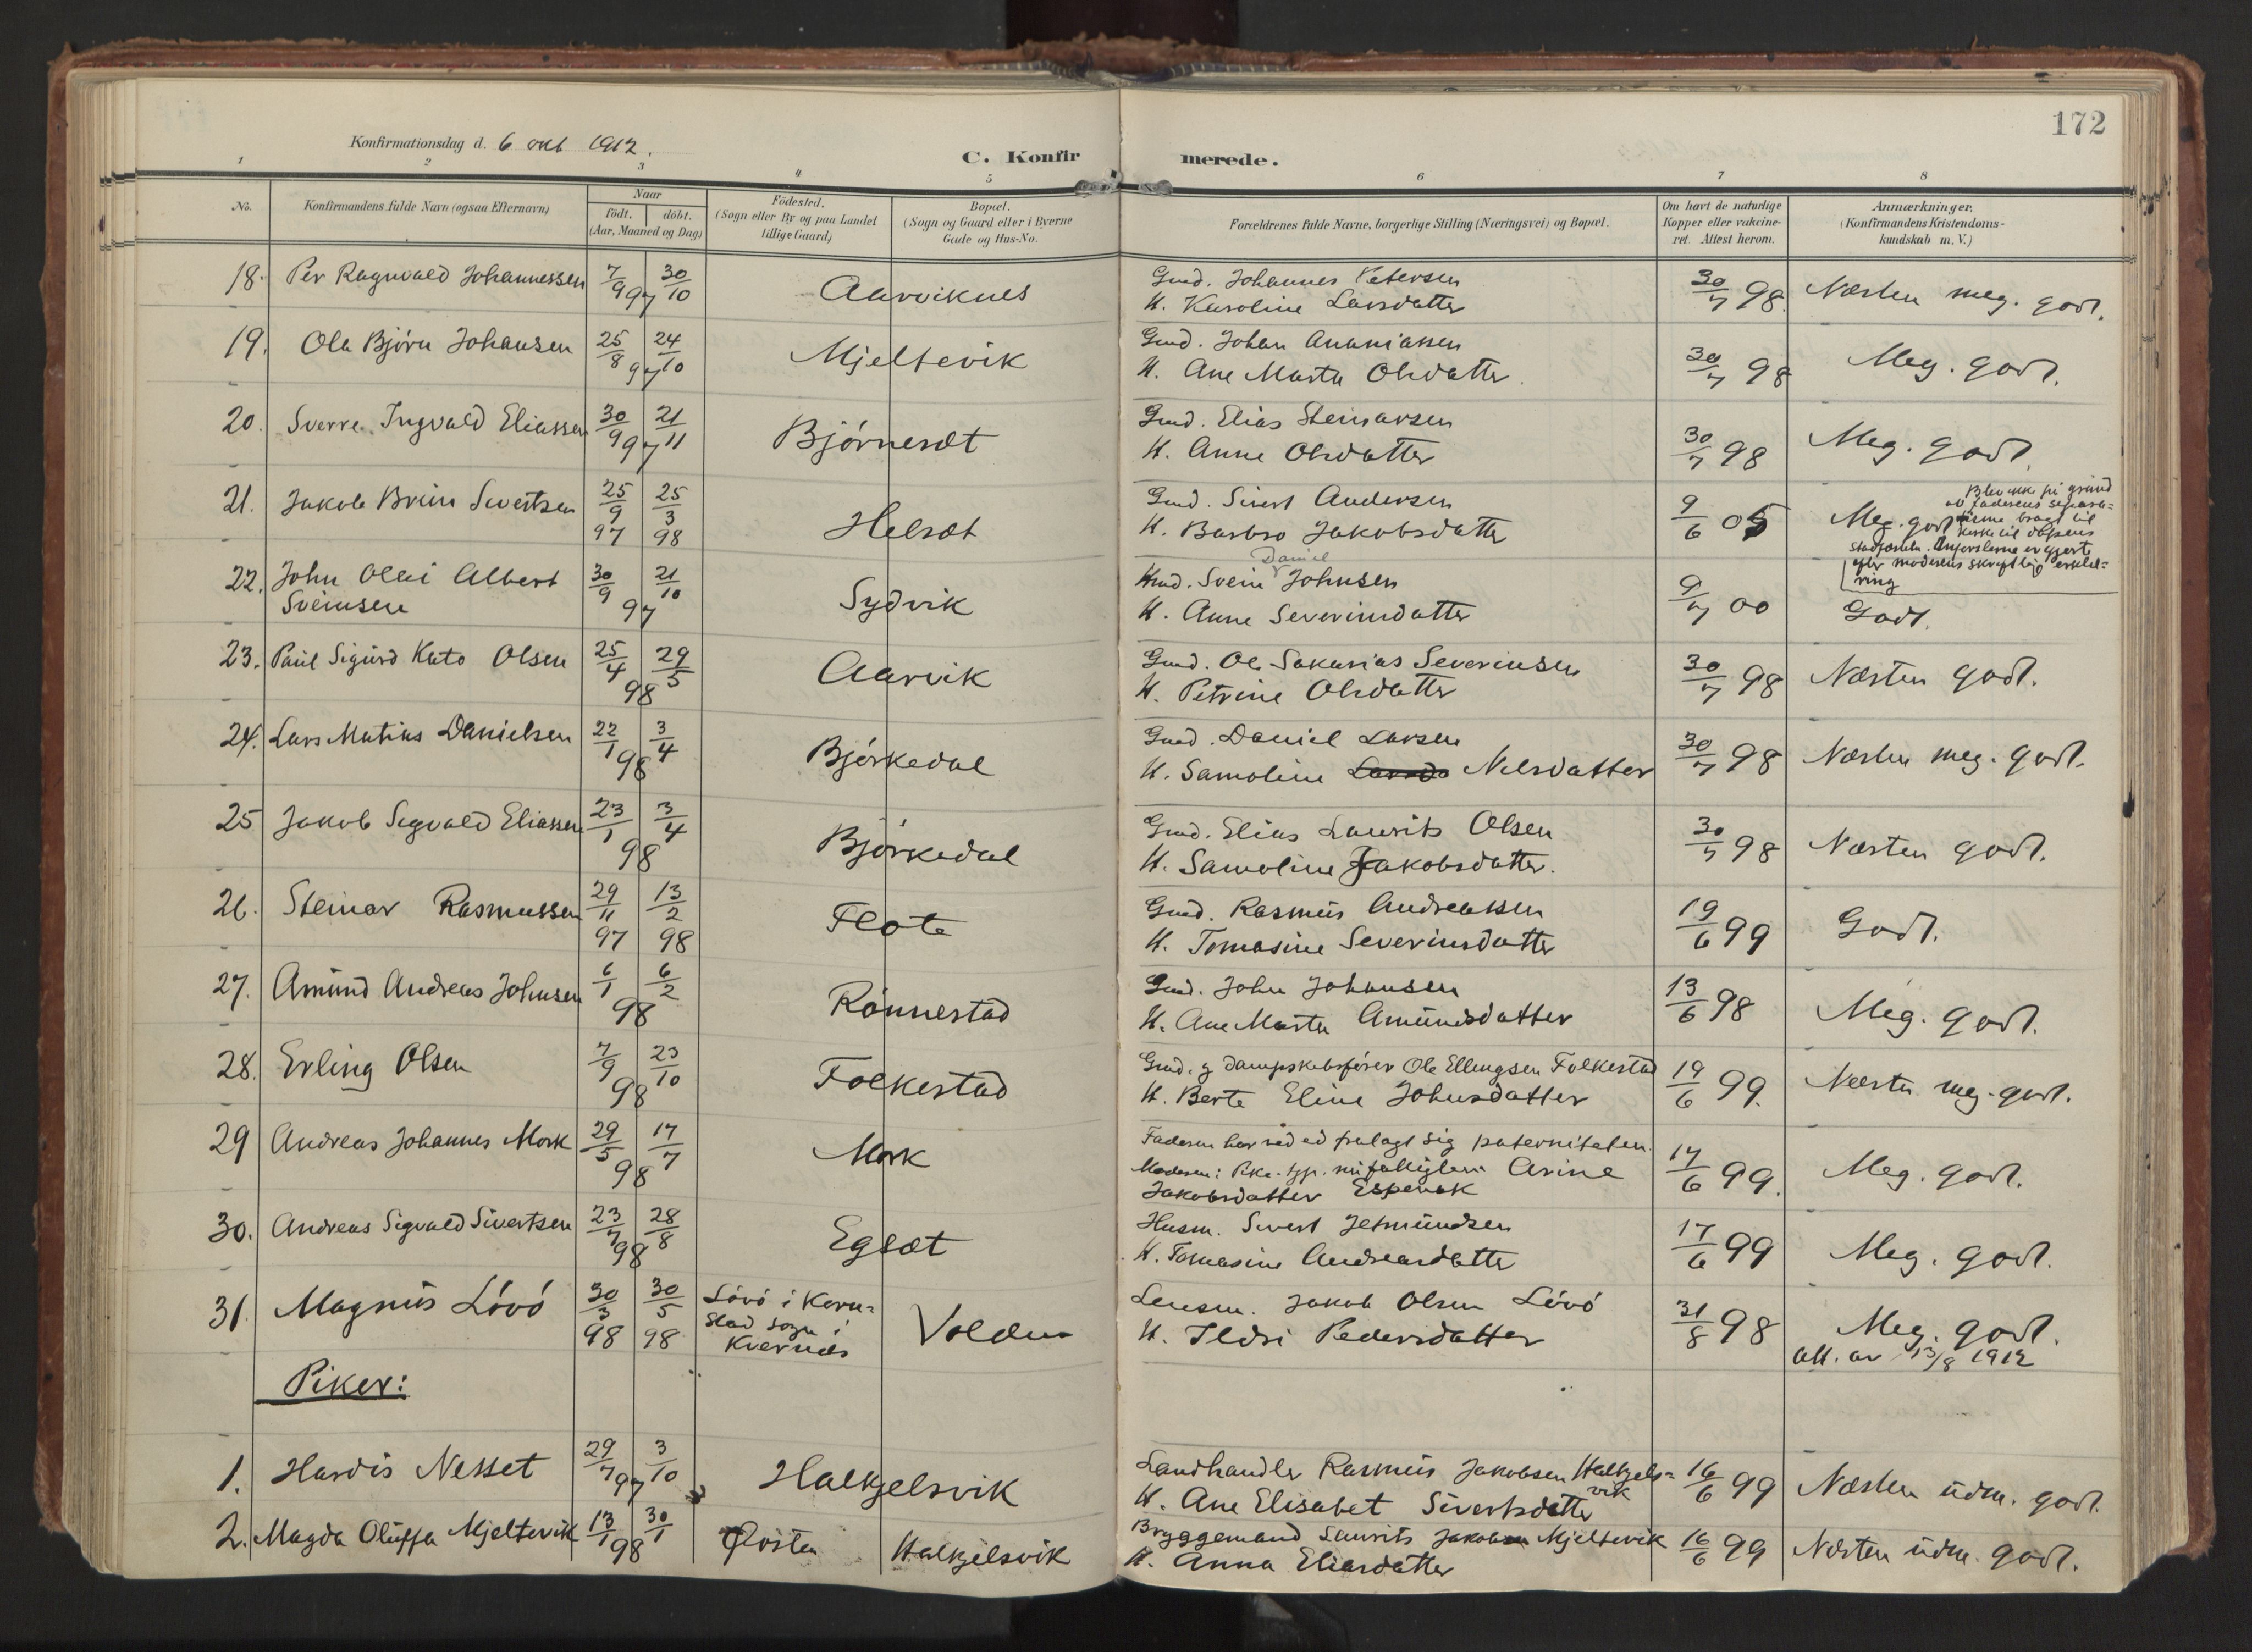 172
Konfirmationsdag d. 6 okt 1912.
C. Konfirmerede.
1 2 3 4 5 6 7 8
No.
Konfirmandens fulde Navn (ogsaa Efternavn)
Naar
födt. döbt.
(Aar, Maaned og Dag)
Födested.
(Sogn eller By og paa Landet
tillige Gaard)
Bopæl.
(Sogn og Gaard eller i Byerne
Gade og Hus-No.
Forældrenes fulde Navne, borgerlige Stilling (Næringsvei) og Bopæl.
Om havt de naturlige
Kopper eller vakcine-
ret. Attest herom.
Anmærkninger.
(Konfirmandens Kristendoms-
kundskab m. V.)
18. Per Ragnvald Johannessen 7/9 97 30/10 Aarviknes Gmd. Johannes Petersen
H. Karoline Larsdatter 30/7 98. Næsten meg. godt.
19. Ola Bjørn Johansen 25/8 97 24/10 Mjeltevik Gmd. Johan Ananiassen
H. Ane Marta Olsdatter. 30/7 98 Meg. godt.
20. Sverre Ingvald Eliassen 30/9 97 21/11 Bjørneset Gmd. Elias Steinarsen
H. Anne Olsdatter 30/7 98 Meg. godt.
21. Jakob Brun Sivertsen 25/9 97 25/3 98 Helset Gmd. Sivert Andersen
H. Barbro Jakobsdatter 9/6 05 Meg. godt
Blev ikk på grund
av faderens separa=
tisme bragt til
kirke til dåpens
stadfæstn. Anførslerne er gjort
efter moderens skriftlig erklæ=
ring
22. John Olai Albert
Sveinsen 30/9 97 21/10 Sydvik Kmd. Svein Daniel Johnsen
H. Anne Severinsdatter 9/7 00 Godt.
23. Paul Sigurd Kato Olsen 25/4 98 29/5 Aarvik Gmd. Ole Sakarias Severinsen
H. Petrine Olsdatter 30/7 98 Næsten godt.
24. Lars Matias Danielsen 22/1 98 3/4 Bjørkedal Gmd. Daniel Larsen
H. Samoline Nilsdatter 30/7 98 Næsten meg. godt.
25 Jakob Sigvald Eliassen 23/1 98 3/4 Bjørkedal Gmd. Elias Laurits Olsen
H. Samoline Jakobsdatter. 30/7 98 Næsten godt.
26. Steinar Rasmussen 29/11 97 13/2 98 Flote Gmd. Rasmus Andreassen
H. Tomasine Severinsdatter 19/6 99 Godt.
27. Amund Andreas Johnsen 6/1 98 6/2 Rønnestad Gmd. John Johansen
H. Ane Marta Amundsdatter 13/6 98 Meg. godt.
28. Erling Olsen 7/9 98 23/10 Folkestad Gmd. og Dampskibsfører Ole Ellingsen Folkestad
H. Berte Eline Johnsdatter 19/6 99. Næsten meg. godt.
29 Andreas Johannes Mork 29/5 98 17/7 Mork Faderen har ved ed fralagt sig paterniteten.
Moderen: Pike Arine
Jakobsdatter Espenak 17/6 99. Meg. godt.
30. Andreas Sigvald Sivertsen 23/7 98 28/8 Egset Husm. Sivert Jetmundsen
H. Tomasine Andreasdatter 17/6 99 Meg. godt.
31. Magnus Lövö 30/3 98 30/5 98 Lövö i Korn=
stad sogn i
Kvernæs Volden Lensm. Jakob Olsen Lövö
H. Ildri Pedersdatter 31/8 98 Meg. godt.
att. av 13/8 1912
Piker:
1. Hardis Nesset 29/7 97 3/10 Halkjelsvik Landhandler Rasmus Jakobsen Halkjels=
vik
H. Ane Elisabet Sivertsdatter 16/6 99 Næsten udm. godt.
2. Magda Oluffa Mjeltevik 13/1 98 30/1 Halkjelsvik Bryggemand Laurits Jakobsen Mjeltevik
H. Anna Eliasdatter 16/6 99 Næsten udm. godt.